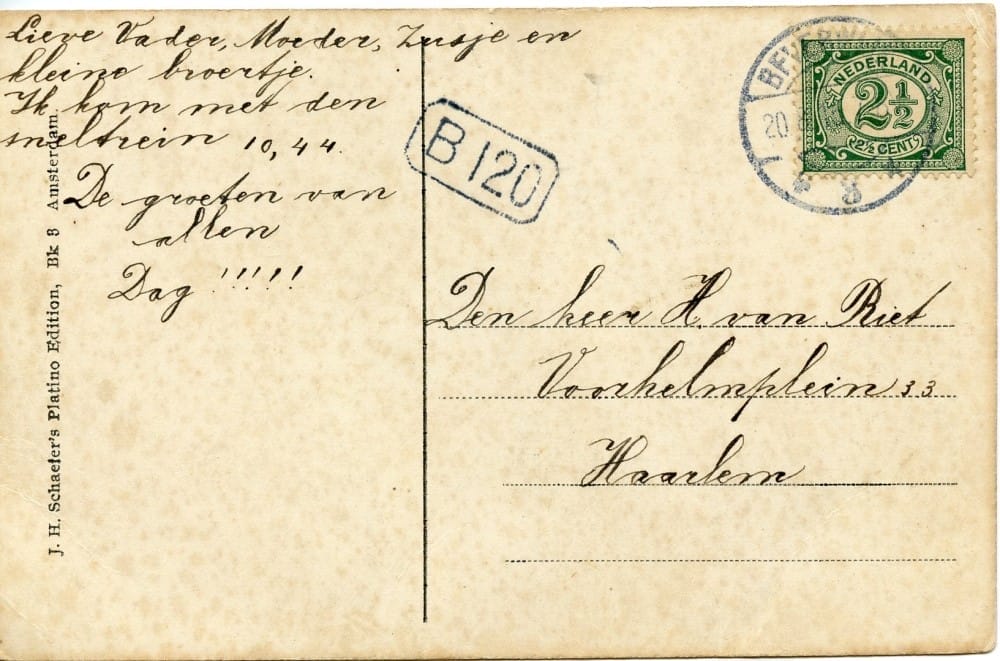 Lieve Vader, Moeder, Zusje en
kleine broertje.
Ik kom met den
sneltrein 10,44.
De groeten van
allen
Dag !!!!!
J. H. Schaefer's Platino Edition, Bk 3 Amsterdam
B 120
NEDERLAND
2½
2½ CENT
20
8
Den heer H. van Riet
Voorhelmplein 33
Haarlem